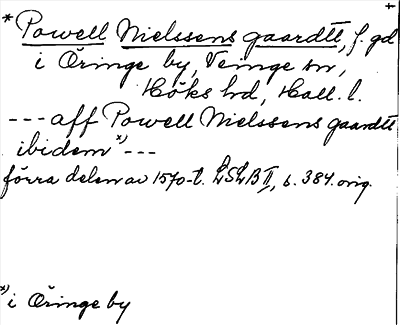 * Powell Nielssens gaardtt, f. gd
i Öringe by, Veinge sn,
Höks hd, Hall. l.
--- aff Powell Nielssens gaardtt
ibidem x) ---
förra delen av 1570-t. LSLB II, s. 384. orig.
x) i Öringe by